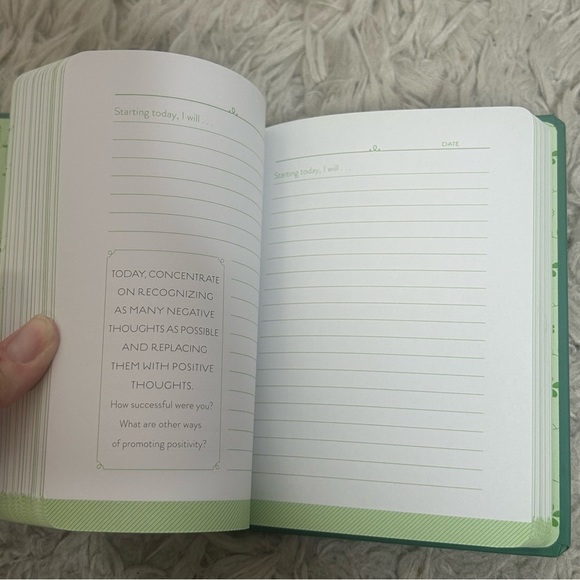 Starting today, I will . . .
TODAY, CONCENTRATE
ON RECOGNIZING
AS MANY NEGATIVE
THOUGHTS AS POSSIBLE
AND REPLACING
THEM WITH POSITIVE
THOUGHTS.
How successful were you?
What are other ways
of promoting positivity?
DATE
Starting today, I will . . .